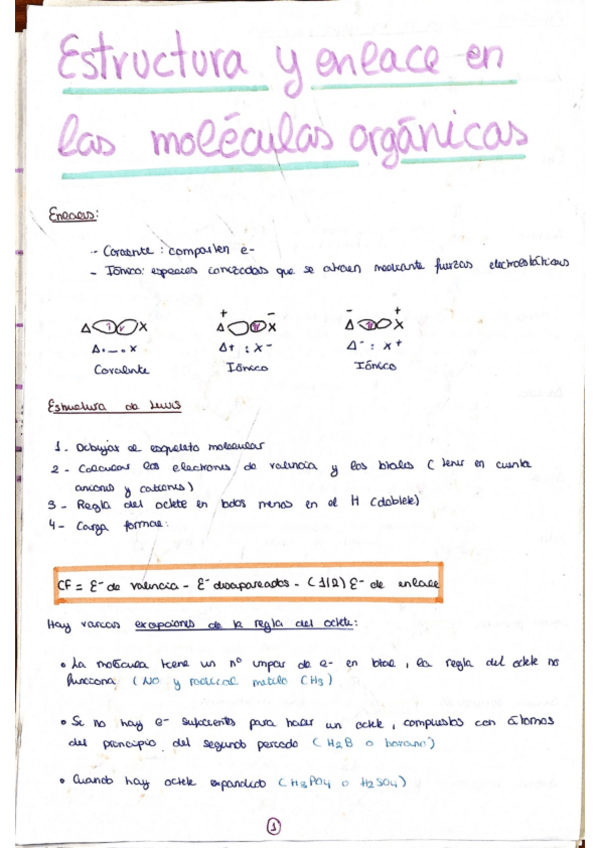 Estructura y enlace en
las moléculas orgánicas
Enlaces:
- Covalente: comparten e-
- Iónico: especies cargadas que se atraen mediante fuerzas electrostáticas
+ - - +
A X A X A X
A·-·X A+ : X- A- : X+
Covalente Iónico Iónico
Estructura de Lewis
1. Dibujar el esqueleto molecular
2 - Calcular los electrones de valencia y los totales (tener en cuenta
aniones y cationes)
3 - Regla del octete en todos menos en el H (doblete)
4 - Carga formal:
CF = E- de valencia - E- desapareados - (1/2) E- de enlace
Hay varias excepciones de la regla del octete:
• La molécula tiene un nº impar de e- en total, la regla del octete no
funciona (NO y radical metilo CH3)
• Se no hay e- suficientes para hacer un octete, compuestos con átomos
del principio del segundo periodo (H2B o borano)
• Cuando hay octete expandido (H3PO4 o H2SO4)
1